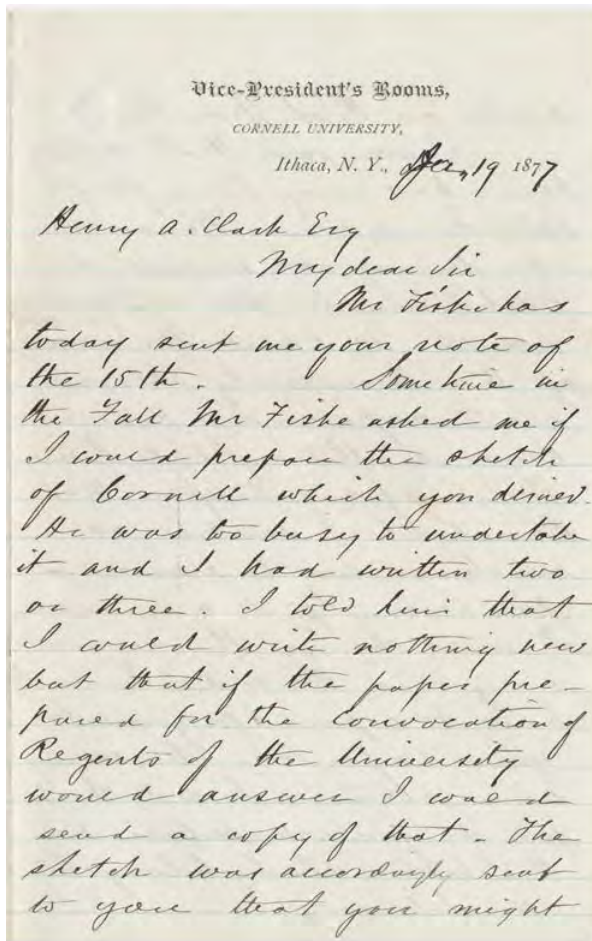 Vice-President's Rooms,
CORNELL UNIVERSITY,
Ithaca, N. Y., Jan 19 1877
Henry A. Clark Esq
My dear Sir
Mr Fiske has
today sent me your note of
the 15th. Sometime in
the Fall Mr Fiske asked me if
I would prepare the sketch
of Cornell which you desired.
He was too busy to undertake
it and I had written two
or three. I told him that
I could write nothing new
but that if the paper pre-
pared for the Convocation of
Regents of the University
would answer I would
send a copy of that - The
sketch was accordingly sent
to you that you might